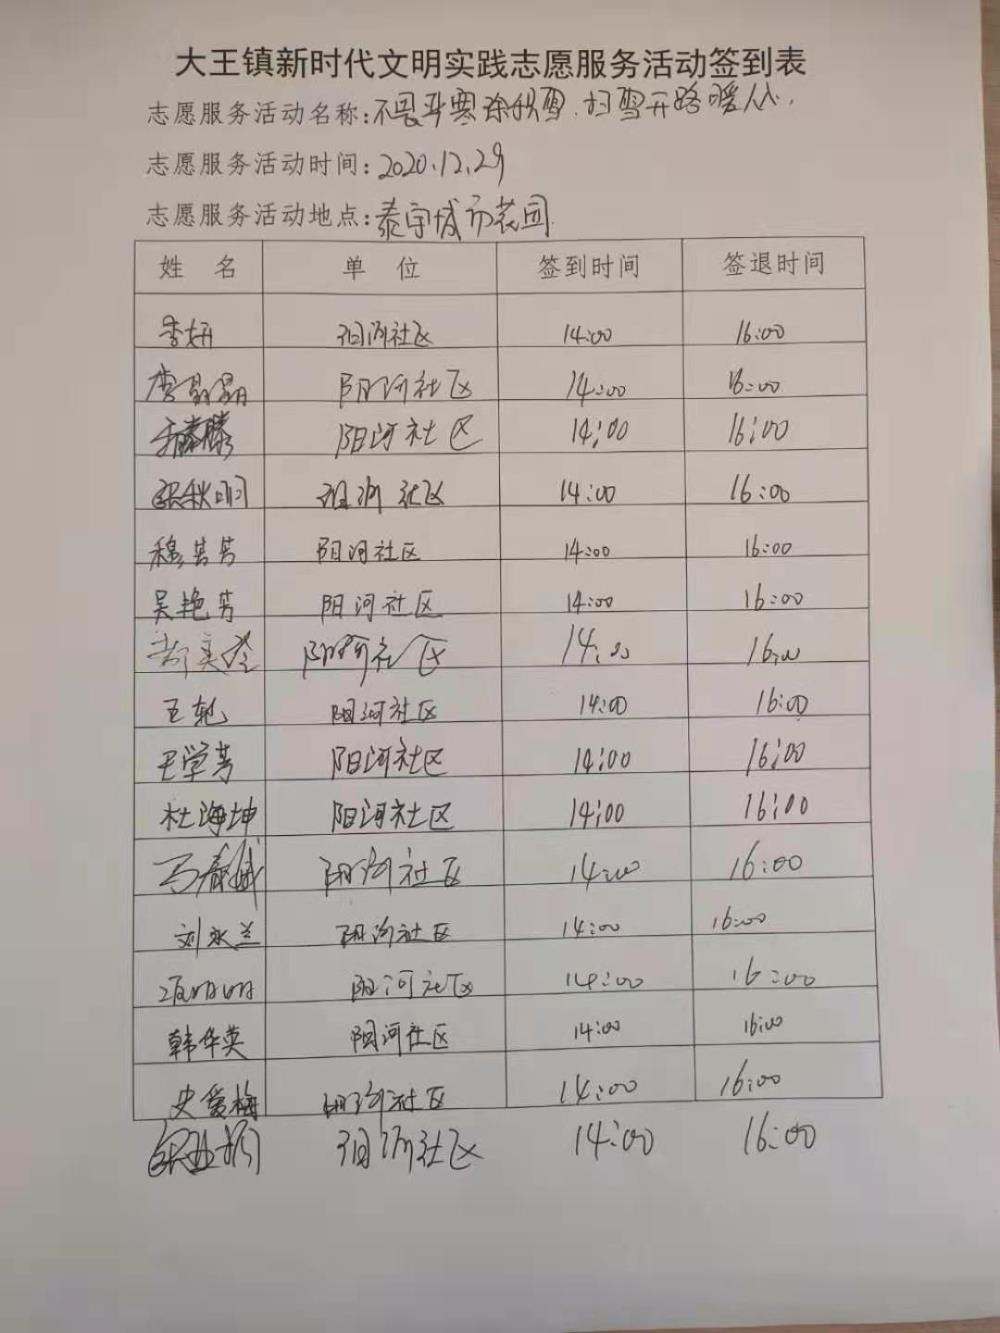 大王镇新时代文明实践志愿服务活动签到表
志愿服务活动名称:不畏严寒除积雪.扫雪开路暖人心.
志愿服务活动时间:2020.12.29
志愿服务活动地点:泰宇城市花园
姓 名 单 位 签到时间 签退时间
李妍 阳河社区 14:00 16:00
唐晶晶 阳河社区 14:00 16:00
阳河社区 14:00 16:00
阳河社区 14:00 16:00
穆芳芳 阳河社区 14:00 16:00
吴艳芳 阳河社区 14:00 16:00
阳河社区 14:00 16:00
阳河社区 14:00 16:00
王学芳 阳河社区 14:00 16:00
杜海坤 阳河社区 14:00 16:00
阳河社区 14:00 16:00
刘永兰 阳河社区 14:00 16:00
阳河社区 14:00 16:00
韩华英 阳河社区 14:00 16:00
史爱梅 阳河社区 14:00 16:00
阳河社区 14:00 16:00